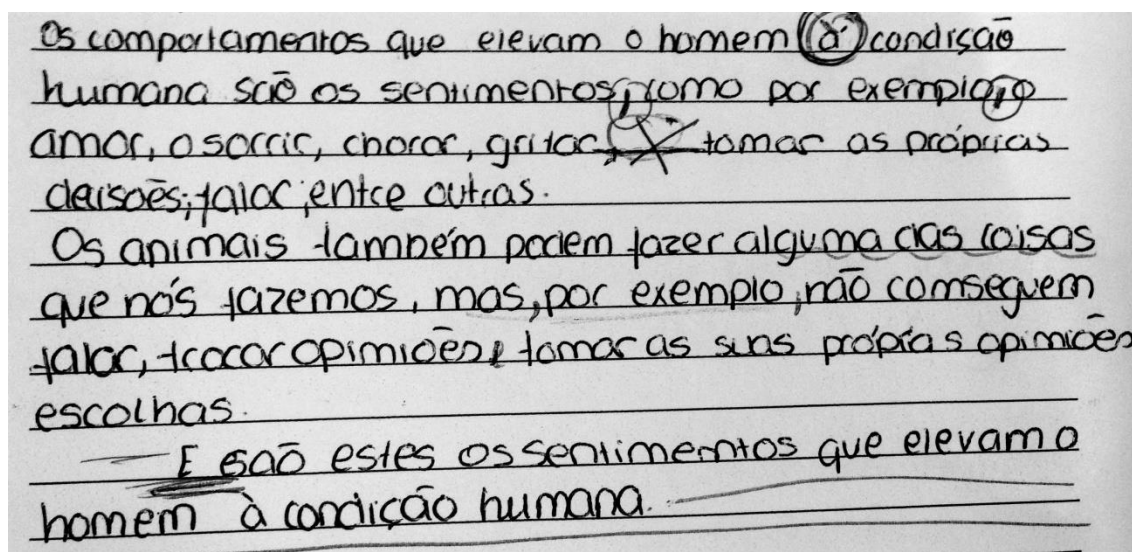 Os comportamentos que elevam o homem à condição
humana são os sentimentos, como por exemplo, o
amor, o sorrir, chorar, gritar, tomar as próprias
decisões, falar, entre outras.
Os animais também podem fazer alguma das coisas
que nós fazemos, mas, por exemplo, não comseguem
falar, trocar opimiões, tomar as suas próprias opimiões
escolhas.
E são estes os sentimemtos que elevam o
homem à condição humana.